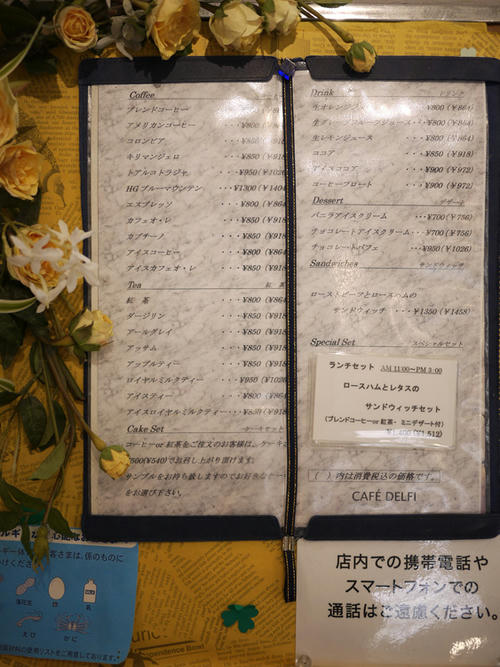 Coffee
ブレンドコーヒー ・・・¥800 (¥864
アメリカンコーヒー ・・・¥800 (¥864
コロンビア ・・・¥850 (¥918
キリマンジェロ ・・・¥850 (¥918
トアルコトラジャ ・・・¥950 (¥1026
HGブルーマウンテン ・・・¥1300 (¥1404
エスプレッソ ・・・¥800 (¥864
カフェオ・レ ・・・¥850 (¥918
カプチーノ ・・・¥850 (¥918
アイスコーヒー ・・・¥850 (¥918
アイスカフェオ・レ ・・・¥850 (¥918
Tea 紅 茶
紅 茶 ・・・¥800 (¥864
ダージリン ・・・¥850 (¥918
アールグレイ ・・・¥850 (¥918
アッサム ・・・¥850 (¥918
アップルティー ・・・¥850 (¥918
ロイヤルミルクティー ・・・¥950 (¥1026
アイスティー ・・・¥800 (¥864
アイスロイヤルミルクティー・・・¥850 (¥918
Cake Set ケーキセット
コーヒーor紅茶をご注文のお客様は、ケーキを
¥500(¥540)でお召し上がり頂けます。
サンプルをお持ち致しますのでお好きなケーキ
をお選び下さい。
Drink ドリンク
生オレンジジュース ¥800 (¥864)
生グレープフルーツジュース・・・¥800 (¥864)
生レモンジュース ・・・¥800 (¥864)
ココア ・・・¥850 (¥918)
アイスココア ・・・¥900 (¥972)
コーヒーフロート ・・・¥900 (¥972)
Dessert デザート
バニラアイスクリーム ・・・¥700(¥756)
チョコレートアイスクリーム・・・¥700(¥756)
チョコレートパフェ ・・・¥950 (¥1026)
Sandwiches サンドウィッチ
ローストビーフとロースハムの
サンドウィッチ ・・・¥1350 (¥1458)
Special Set スペシャルセット
ランチセット AM 11:00~PM 3:00
ロースハムとレタスの
サンドウィッチセット
(ブレンドコーヒーor紅茶・ミニデザート付)
¥1,400 (¥1,512)
( )内は消費税込の価格です。
CAFÉ DELFI
店内での携帯電話や
スマートフォンでの
通話はご遠慮ください。
客さまは、係のものに
落花生
卵
乳
えび
かに
原材料の使用リストをご用意しております。